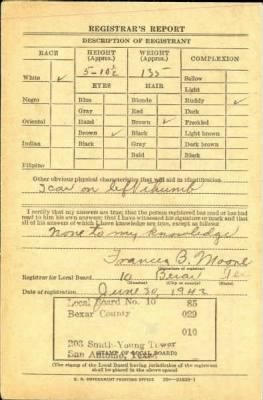 REGISTRAR'S REPORT
DESCRIPTION OF REGISTRANT
RACE HEIGHT (Approx.) WEIGHT (Approx.) COMPLEXION
White ✓ 5-10½ 135 Sallow
Light
Negro EYES HAIR Ruddy ✓
Blue Blonde Dark
Gray Red Freckled
Oriental Hazel Brown ✓ Light brown
Brown ✓ Black Dark brown
Indian Black Gray Black
Bald
Filipino
Other obvious physical characteristics that will aid in identification
Scar on left thumb
I certify that my answers are true; that the person registered has read or has had
read to him his own answers; that I have witnessed his signature or mark and that
all of his answers of which I have knowledge are true, except as follows:
None to my knowledge
Frances B. Moore
(Signature of registrar)
Registrar for Local Board 10 Bexar Tex
(Number) (City or county) (State)
Date of registration June 30, 1942
Local Board No. 10 85
Bexar County 029
010
203 Smith-Young Tower
San Antonio, Texas
(STAMP OF LOCAL BOARD)
(The stamp of the Local Board having jurisdiction of the registrant
shall be placed in the above space)
U. S. GOVERNMENT PRINTING OFFICE